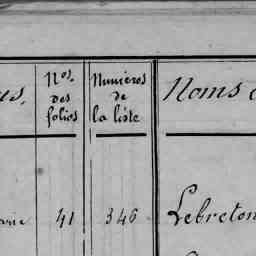 Nos.
des
folios
Numéros
de
la liste
Noms
41
346
Lebreton